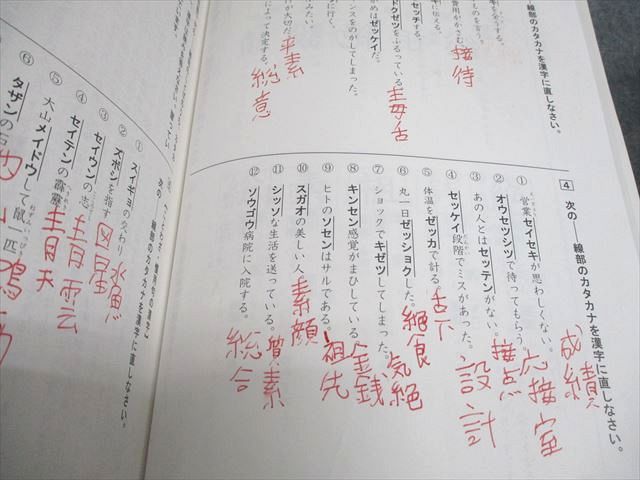 線部のカタカナを漢字に直しなさい。
接待
セッチする。
ドクゼツをふるっている
毒舌
はゼッケイだ。
ンスをのがしてしまった。
に行く。
が大切だ。
平素
よって決定する。
総意
4 次の——線部のカタカナを漢字に直しなさい。
① 営業セイセキが思わしくない。
成績
② オウセツシツで待ってもらう。
応接室
③ あの人とはセッテンがない。
接点
④ セッケイ段階でミスがあった。
設計
⑤ 体温をゼッカで計る。
舌下
⑥ 丸一日ゼッショクした。
絶食
⑦ ショックでキゼツしてしまった。
気絶
⑧ キンセン感覚がまひしている。
金銭
⑨ ヒトのソセンはサルである。
祖先
⑩ スガオの美しい人。
素顔
⑪ シッソな生活を送っている。
質素
⑫ ソウゴウ病院に入院する。
総合
次の——線部のカタカナを漢字に直しなさい。
① スイギョの交わり
水魚
② ズボシを指す
図星
③ セイウンの志
青雲
④ セイテンの霹靂
青天
⑤ 大山メイドウして鼠一匹
鳴
⑥ タザンの石